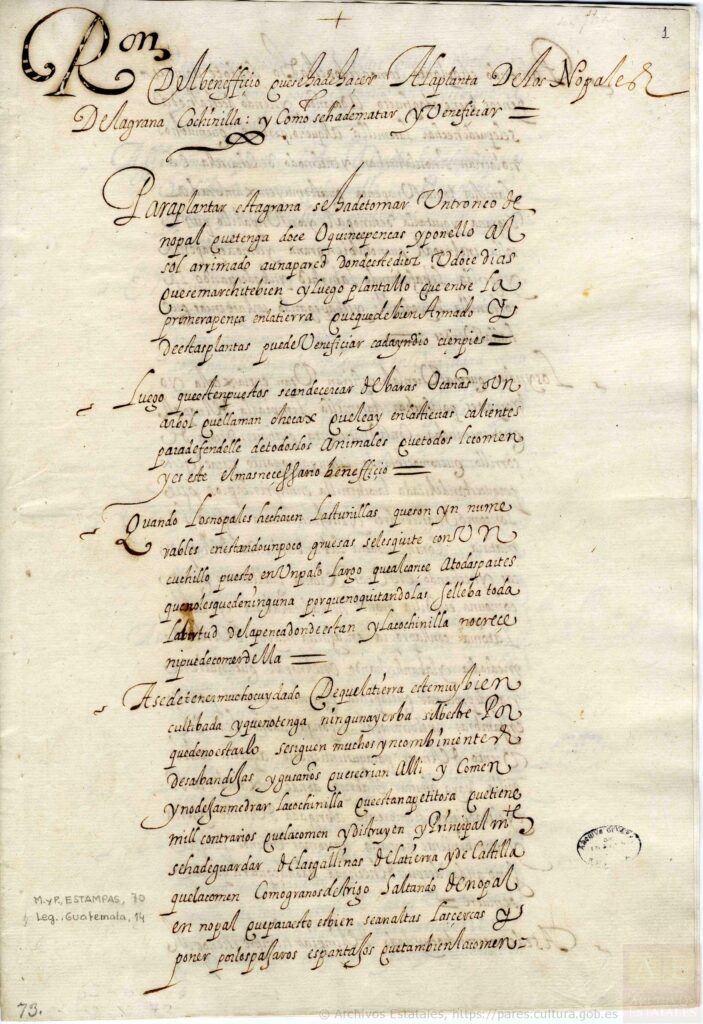 +
1
Ron
Del benefficio que se ha de hacer A la planta De los Nopales
De la grana Cochinilla: y Como se ha de matar y Veneficiar =
Para plantar esta grana se ha de tomar Un tronco de
nopal que tenga doce O quince pencas y ponello Al
sol arrimado a una pared donde este diez U doce dias
que se marchite bien y luego plantallo que entre La
primera penca en la tierra que quede bien Armado Y
De estas plantas puede Veneficiar cada yndio cien pies =
Luego que esten puestos se an de cercar de baras O cañas o Un
arbol que llaman que le ay en las tierras calientes
para defendelle de todos los Animales que todos Le comen
y es este el mas necessario benefficio =
Quando Los nopales hecharen Las tunillas que son yn nume
rables en estando un poco gruesas se les quite con UN
cuchillo puesto en Un palo Largo que alcance a todas partes
que no les quede ninguna por que no quitandolas se lleba toda
La birtud de la penca donde estan y La cochinilla no crece
ni puede comer della =
A se de tener mucho cuydado De que la tierra este muy bien
cultibada y que no tenga ninguna yerba silbestre Por
que de no estarlo se siguen muchos yncombinientes
De sabandijas y gusanos que se crian Alli y Comen
y no dejan medrar La cochinilla que es tan apetitosa que tiene
mill contrarios que la comen y distruyen y Principal mte
se ha de guardar de las gallinas de la tierra y de Castilla
que la comen Como granos de trigo Saltando de nopal
en nopal que para esto es bien sean altas Las cercas Y
poner por los pajaros espantajos que tambien la comen =
M.y P. ESTAMPAS, 70
Leg. Guatemala, 14
73.
© Archivos Estatales, https://pares.cultura.gob.es